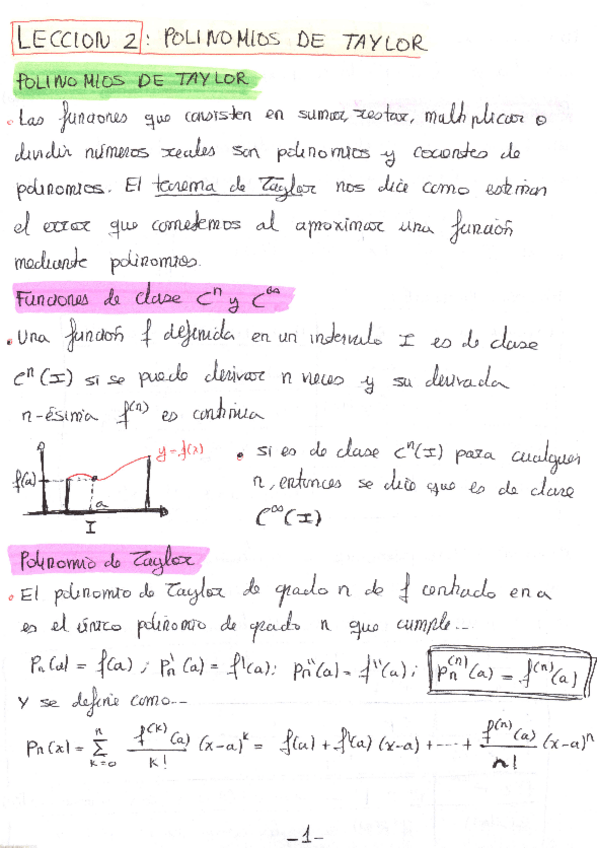 LECCION 2: POLINOMIOS DE TAYLOR
POLINOMIOS DE TAYLOR
Las funciones que consisten en sumar, restar, multiplicar o
dividir números reales son polinomios y cocientes de
polinomios. El teorema de Taylor nos dice como estiman
el error que cometemos al aproximar una función
mediante polinomios.
Funciones de clase Cⁿ y C^∞
Una función f definida en un intervalo I es de clase
Cⁿ(I) si se puede derivar n veces y su derivada
n-ésima f⁽ⁿ⁾ es continua
y=f(x)
f(a)
a
I
si es de clase Cⁿ(I) para cualquier
n, entonces se dice que es de clase
C^∞(I)
Polinomio de Taylor
El polinomio de Taylor de grado n de f centrado en a
es el único polinomio de grado n que cumple...
Pn(a) = f(a); P'n(a) = f'(a); Pn''(a) = f''(a); Pn⁽ⁿ⁾(a) = f⁽ⁿ⁾(a)
Y se define como...
Pn(x) = Σ_{k=0}^{n} f^(k)(a)/k! (x-a)^k = f(a) + f'(a)(x-a) + ---- + f⁽ⁿ⁾(a)/n! (x-a)ⁿ
-1-